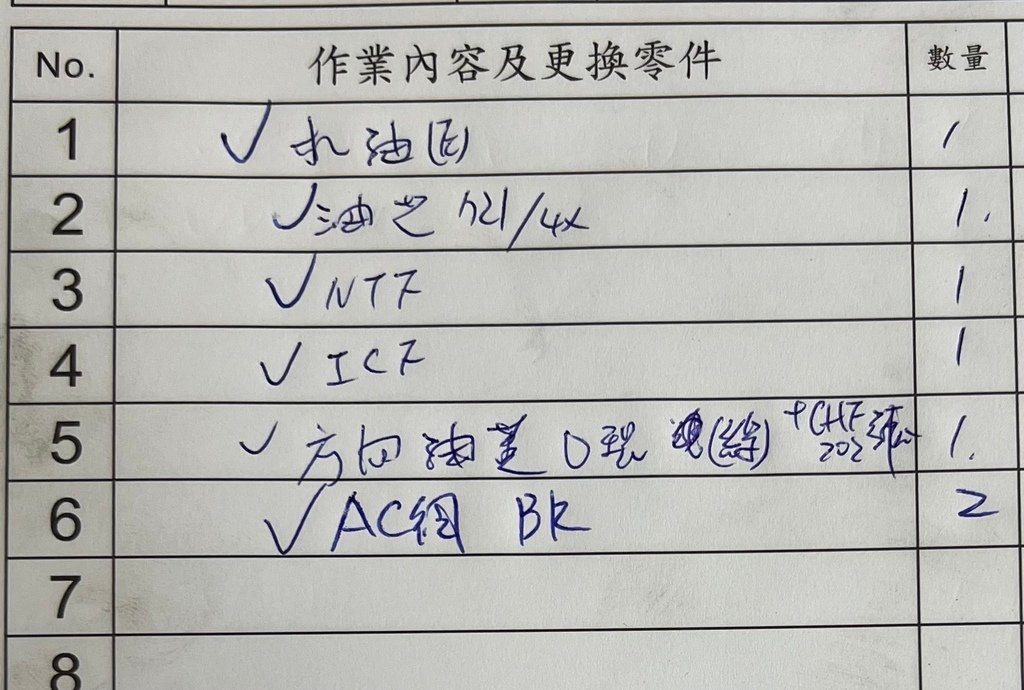 No. 作業內容及更換零件 數量
1 ✓ 机油(E) 1
2 ✓ 油芯 1
3 ✓ NTF 1
4 ✓ ICF 1
5 ✓ 方向油蓋 O環 (綠) +CHF 202 1.
6 ✓ AC網 BK 2
7
8